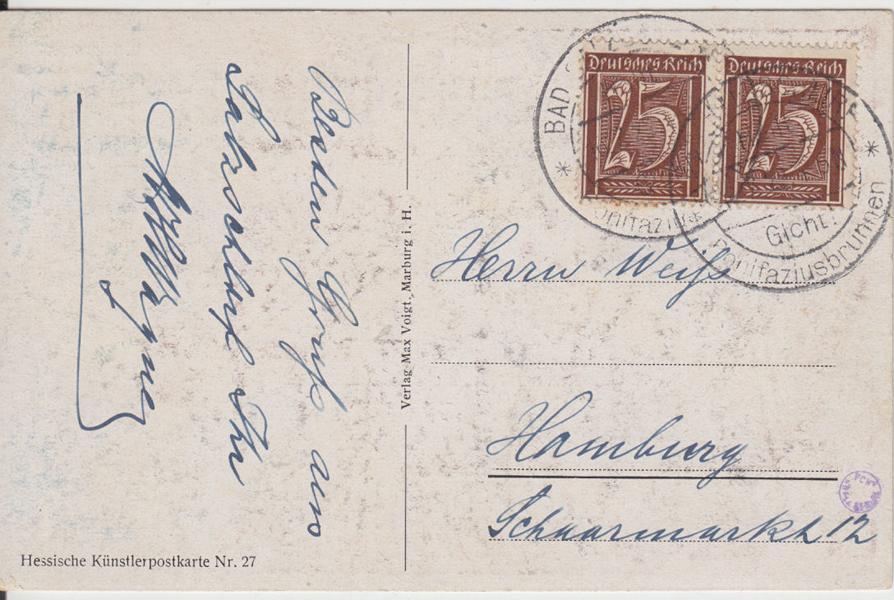 Besten Gruß aus
Salzschlirf Ihr
Wagner
Hessische Künstlerpostkarte Nr. 27
Verlag Max Voigt, Marburg i. H.
Deutsches Reich
25
Deutsches Reich
25
BAD
Bonifazius
Gicht
Bonifaziusbrunnen
Herrn Weiß
Hamburg
Schaarmarkt 12